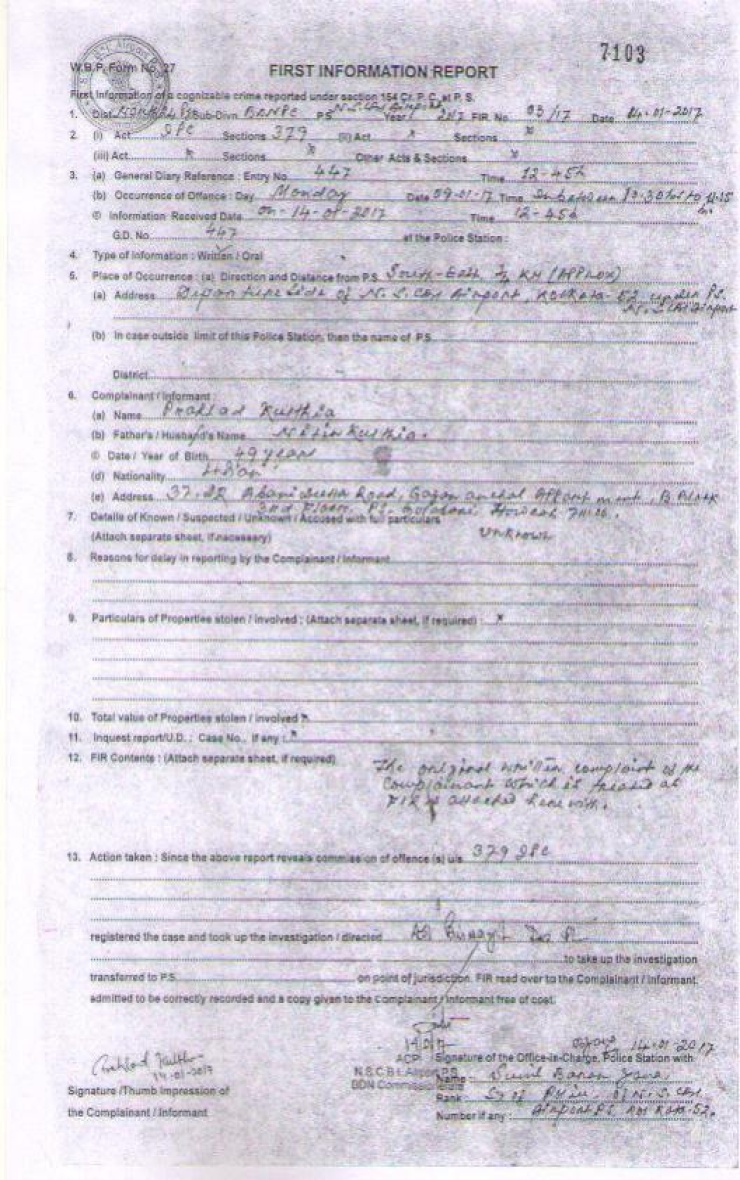 7103
W.B.P. Form No. 27
FIRST INFORMATION REPORT
First Information of a cognizable crime reported under section 154 Cr. P. C. at P. S.
1. Dist. Sub-Divn. P.S. N.S.CBI Airport Year 2017 FIR No. 03/17 Date 14-01-2017
2. (i) Act IPC Sections 379 (ii) Act x Sections x
(iii) Act x Sections x Other Acts & Sections x
3. (a) General Diary Reference : Entry No. 447 Time 12-45h
(b) Occurrence of Offence : Day Monday Date 09-01-17 Time In between
© Information Received Date on-14-01-2017 Time 12-45h
G.D. No. 447 at the Police Station :
4. Type of Information : Written / Oral
5. Place of Occurrence : (a) Direction and Distance from P.S. South-East, KM (APPROX)
(a) Address Departure Side of N.S.CBI Airport, Kolkata-52 under P.S.
N.S.CBI Airport
(b) In case outside limit of this Police Station, then the name of P.S.
District
6. Complainant / Informant :
(a) Name Prahlad Kusthia
(b) Father's / Husband's Name Nitin Kusthia.
© Date / Year of Birth 49 year
(d) Nationality
(e) Address 37, Abani Dutta Road, B. Block
3rd Floor, P.S. Golabari Howrah
7. Details of Known / Suspected / Unknown / Accused with full particulars
(Attach separate sheet, if necessary) Unknown
8. Reasons for delay in reporting by the Complainant / Informant
9. Particulars of Properties stolen / involved : (Attach separate sheet, if required) : x
10. Total value of Properties stolen / involved x
11. Inquest report/U.D. : Case No., if any : x
12. FIR Contents : (Attach separate sheet, if required) The original written complaint of the
complainant which is treated as
FIR is attached herewith.
13. Action taken : Since the above report reveals commission of offence (s) u/s 379 IPC
registered the case and took up the investigation / directed
to take up the investigation
transferred to P.S. on point of jurisdiction. FIR read over to the Complainant / Informant,
admitted to be correctly recorded and a copy given to the Complainant / Informant free of cost.
14-01-2017
14-01-2017
Signature of the Office-in-Charge, Police Station with
N.S.C.B.I. Airport P.S. Name
Signature /Thumb Impression of Rank
the Complainant / Informant Number if any : Airport P.S. Kolkata-52.